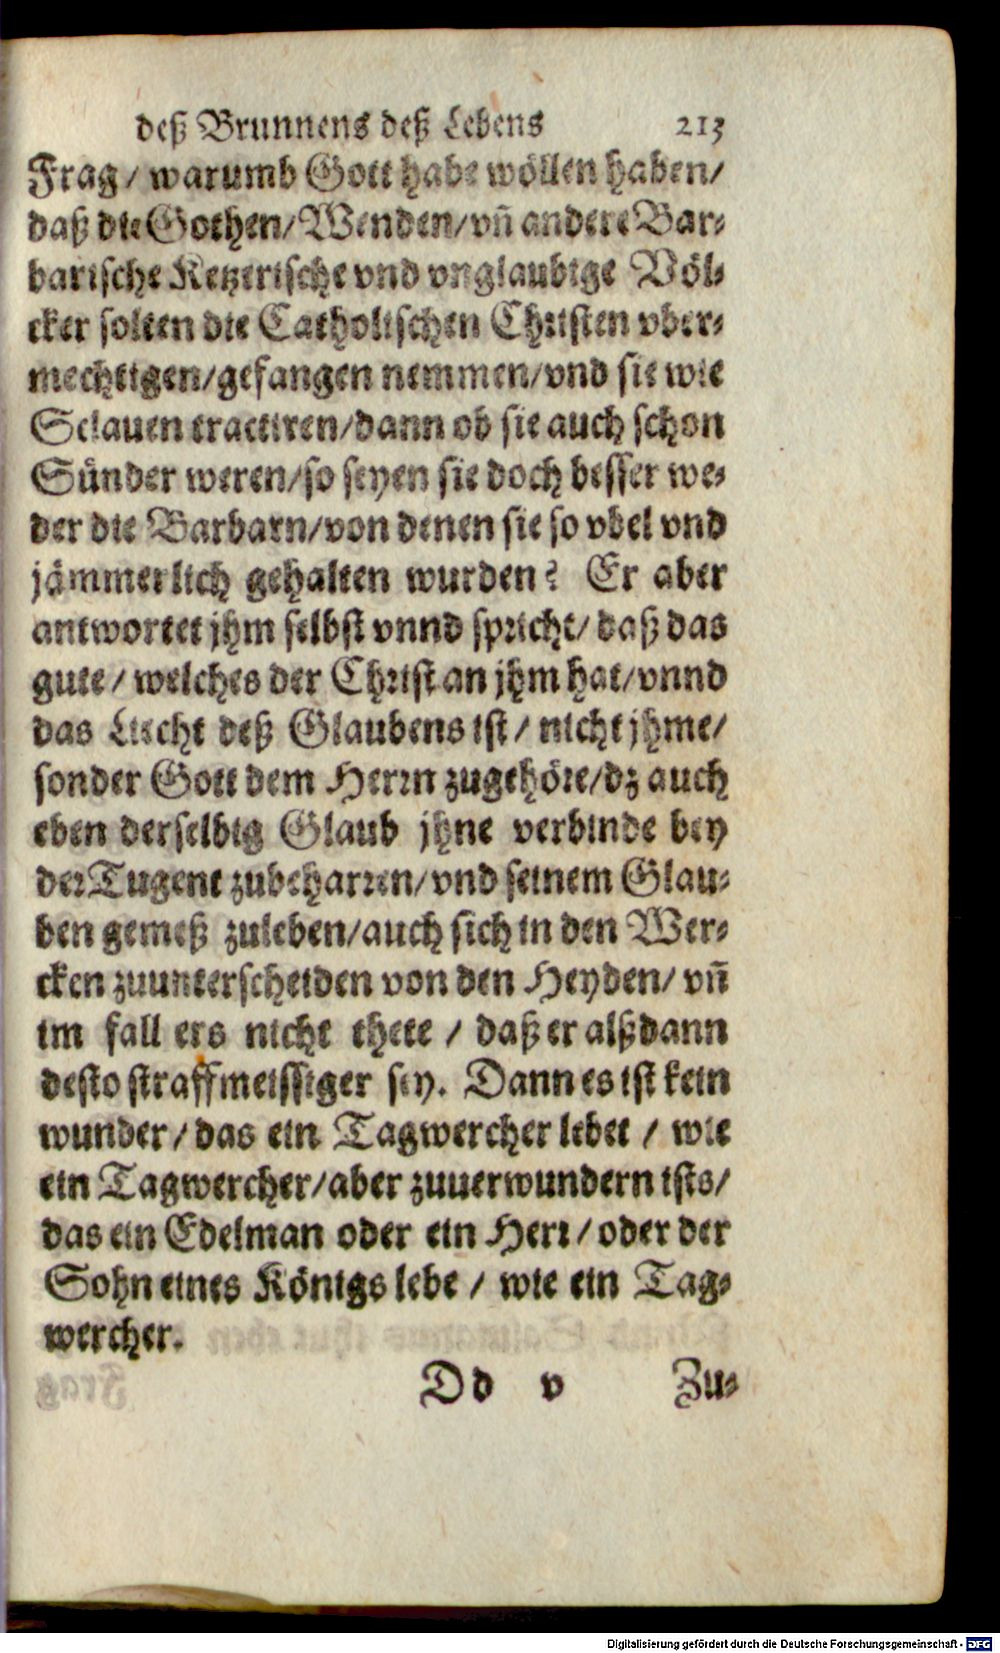 deß Brunnens deß Lebens 213
Frag/ warumb Gott habe wöllen haben/
daß die Gothen/ Wenden/ vñ andere Bar-
barische Ketzerische vnd vnglaubige Völ-
cker solten die Catholischen Christen vber-
mechtigen/ gefangen nemmen/ vnd sie wie
Sclauen tractiren/ dann ob sie auch schon
Sünder weren/ so seyen sie doch besser we-
der die Barbarn/ von denen sie so vbel vnd
jämmerlich gehalten wurden? Er aber
antwortet jhm selbst vnnd spricht/ daß das
gute/ welches der Christ an jhm hat/ vnnd
das Liecht deß Glaubens ist/ nicht jhme/
sonder Gott dem Herrn zugehöre/ dz auch
eben derselbig Glaub jhne verbinde bey
der Tugent zubeharren/ vnd seinem Glau-
ben gemeß zuleben/ auch sich in den Wer-
cken zuunterscheiden von den Heyden/ vñ
im fall ers nicht thete / daß er alßdann
desto straffmeissiger sey. Dann es ist kein
wunder/ das ein Tagwercher lebet / wie
ein Tagwercher/ aber zuuerwundern ists/
das ein Edelman oder ein Herr/ oder der
Sohn eines Königs lebe / wie ein Tag-
wercher.
Dd v Zu-
Digitalisierung gefördert durch die Deutsche Forschungsgemeinschaft - DFG